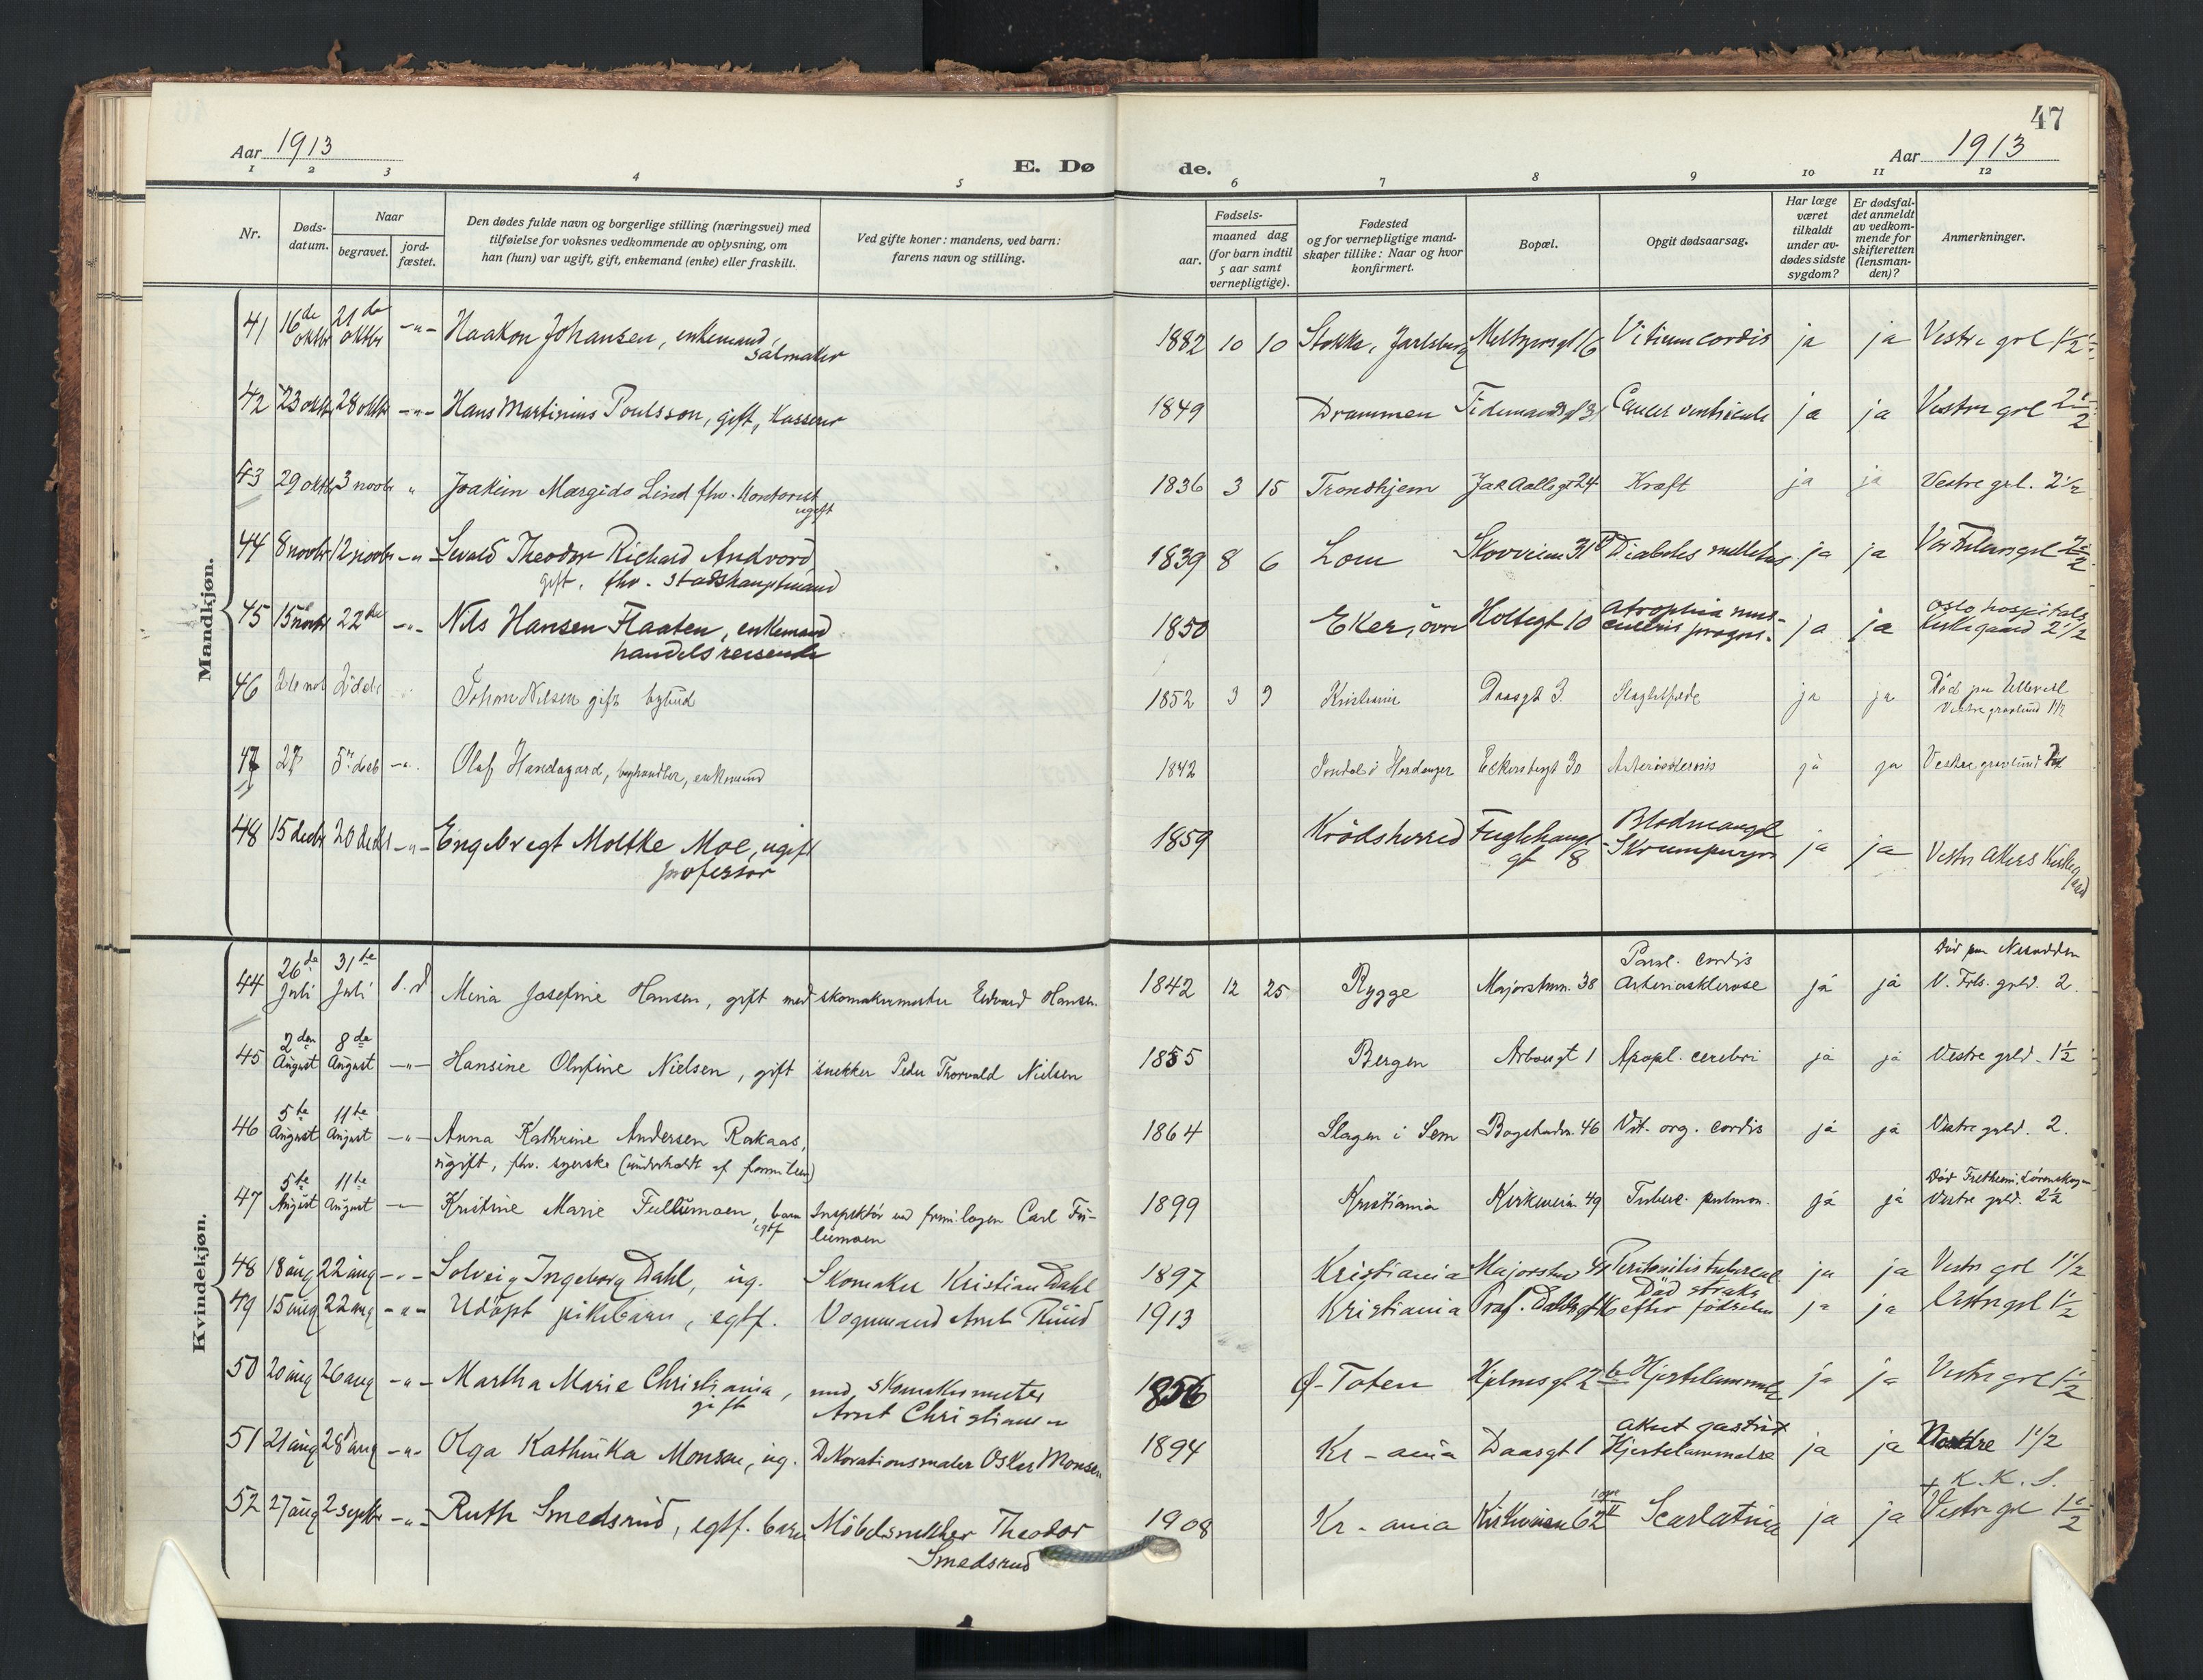 47
Aar 1913
E. Dø de.
Aar 1913
1 2 3 4 5 6 7 8 9 10 11 12
Nr.
Døds-
datum.
Naar
begravet.
jord-
fæstet.
Den dødes fulde navn og borgerlige stilling (næringsvei) med
tilføielse for voksnes vedkommende av oplysning, om
han (hun) var ugift, gift, enkemand (enke) eller fraskilt.
Ved gifte koner: mandens, ved barn:
farens navn og stilling.
Fødsels-
aar.
maaned dag
(for barn indtil
5 aar samt
vernepligtige).
Fødested
og for vernepligtige mand-
skaper tillike: Naar og hvor
konfirmert.
Bopæl.
Opgit dødsaarsag.
Har læge
været
tilkaldt
under av-
dødes sidste
sygdom?
Er dødsfal-
det anmeldt
av vedkom-
mende for
skifteretten
(lensman-
den)?
Anmerkninger.
Mandkjøn.
41 16de oktbr 21de oktbr -"- Haakon Johansen, enkemand, salmaker 1882 10 10 Stokke, Jarlsberg Meltzersgt 16 Vitium cordis ja ja Vestre grl 1½
42 23 oktbr 28 oktbr -"- Hans Martinius Poulsson, gift, Kasserer 1849 Drammen Tidemandsgt 31 Cancer ventriculi ja ja Vestre grl 2½
43 29 oktbr 3 novbr " Joakim Margido Lind fhv. Kontorist ugift 1836 3 15 Trondhjem Jac Aallsgt 24 Kræft ja ja Vestre grl. 2½
44 8 novbr 12 novbr -"- Sevald Theodor Richard Andvord gift, fhv. Stadshauptmand 1839 8 6 Lom Skovveien 31 Diabetes mellitus ja ja Vor Frelsers grl 2½
45 15 novbr 22de -"- Nils Hansen Flaaten, enkemand handelsreisende 1850 Eker, øvre Holtegt 10 Atrophia mus-
culeris progres. ja ja Oslo hospitals
Kirkegaard 2½
46 26 nov 2 deb Johan Nilsen gift bybud 1852 3 9 Kristiania Daasgt 3. Slagtilfælde ja ja Død paa Ullevaal
Vestre gravlund 1½
47 27 5 deb -"- Olaf Handagard, boghandler, enkemand 1842 Jondal i Hardanger Eckersbergt 30 Arteriosclerosis ja ja Vestre gravlund 2
48 15 decbr 20 decbr -"- Engebregt Moltke Moe, ugift professor 1859 Krødsherred Fuglehaug
gt 8 Blodmangel
Skrumpenyre ja ja Vestre Akers Kirkegaard
Kvindekjøn.
44 26de Juli 31te Juli s.d. Mina Josefine Hansen, gift med skomakermester Edvard Hansen. 1842 12 25 Rygge Majorstuv. 38 Paral. cordis
Arteriosklerose ja ja Død paa Nesodden
V. Frls. grld. 2.
45 2den August 8de August -"- Hansine Olufine Nielsen, gift snekker Peder Thorvald Nielsen 1855 Bergen Arbosgt 1 Apopl. cerebri ja ja Vestre grld. 1½
46 5te August 11te August -"- Anna Kathrine Andersen Rakaas,
ugift, fhv. syerske (underholdt af familien) 1864 Slagen i Sem Bogstadv. 46 Vit. org. cordis ja ja Vestre grld. 2.
47 5te August 11te August -"- Kristine Marie Fullumoen, barn egtf Inspektør ved frimlogen Carl Ful-
lumoen 1899 Kristiania Kirkeveien 49 Tuberc. pulmon. ja ja Død Fretheim, Lørenskogen
Vestre grld. 2½
48 18 aug 22 aug -"- Solveig Ingeborg Dahl, ug. Skomaker Kristian Dahl 1897 Kristiania Majorstuv Peritonitis tubercul. ja ja Vestre grl 1½
49 15 aug 22 aug -"- Udøpt pikebarn, egtf. Vognmand Arnt Ruud 1913 Kristiania Prof. Dahlsgt 16 Død straks
efter fødselen ja ja Vestre grl 1½
50 20 aug 26 aug -"- Martha Marie Christiania, gift med skomakermester
Arnt Christiansen 1856 Ø-Toten Hjelmsgt 2b Hjertelammelse ja ja Vestre grl 1½
51 21 aug 28 aug -"- Olga Kathinka Monsen, ug. Dekorationsmaler Oskar Monsen 1894 Kr-ania Daasgt 1 Akut gastrit
Hjertelammelse ja ja Vestre 1½
52 27 aug 2 septbr -"- Ruth Smedsrud, egtf. barn Møbelsnekker Theodor
Smedsrud 1908 Kr-ania Kirkeveien 62 Scarlatina ja ja + K. K. S.
Vestre grl 1½